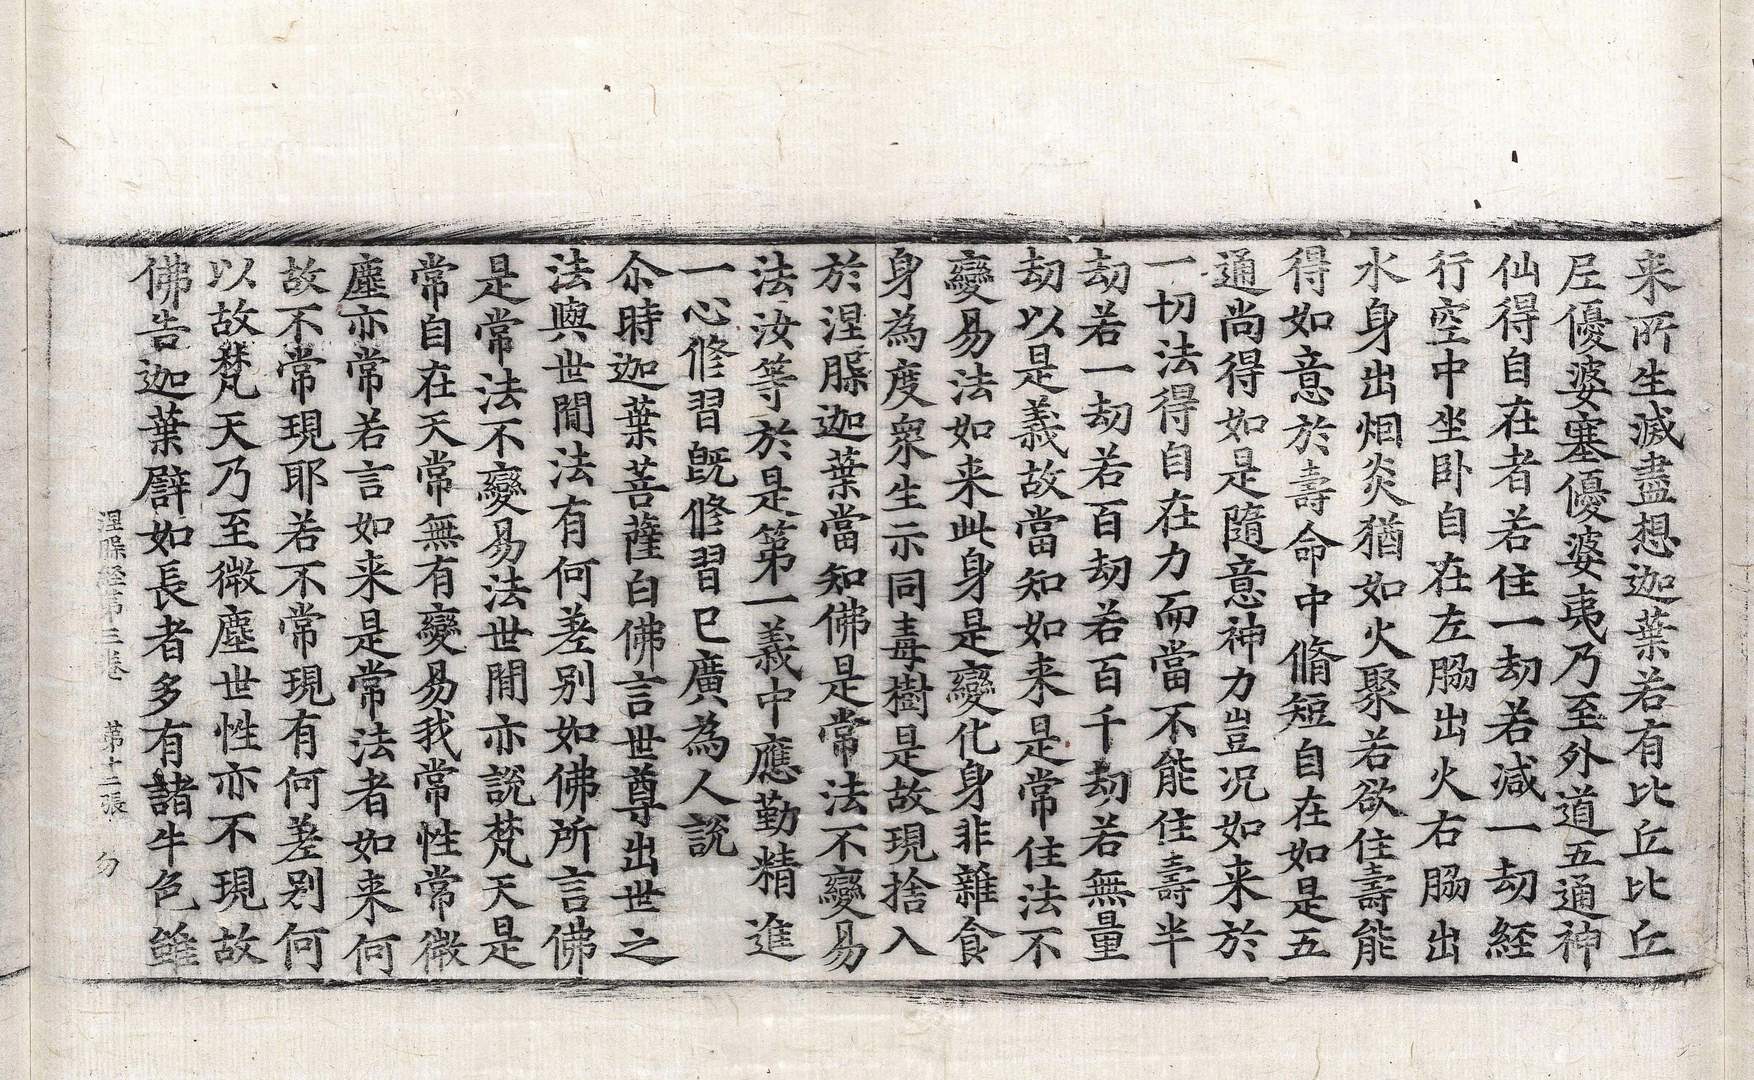 来所生滅盡想迦葉若有比丘比丘
尼優婆塞優婆夷乃至外道五通神
仙得自在者若住一劫若减一劫経
行空中坐卧自在左脇出火右脇出
水身出烟炎猶如火聚若欲住壽能
得如意於壽命中脩短自在如是五
通尚得如是隨意神力豈况如来於
一切法得自在力而當不能住壽半
劫若一劫若百劫若百千劫若無量
劫以是義故當知如来是常住法不
變易法如来此身是變化身非雜食
身為度衆生示同毒樹是故現捨入
於涅槃迦葉當知佛是常法不變易
法汝等於是第一義中應勤精進
一心修習既修習已廣為人說
尒時迦葉菩薩白佛言世尊出世之
法與世間法有何差别如佛所言佛
是常法不變易法世間亦說梵天是
常自在天常無有變易我常性常微
塵亦常若言如来是常法者如来何
故不常現耶若不常現有何差别何
以故梵天乃至微塵世性亦不現故
佛告迦葉譬如長者多有諸牛色雖
涅槃経第三卷 第十二張